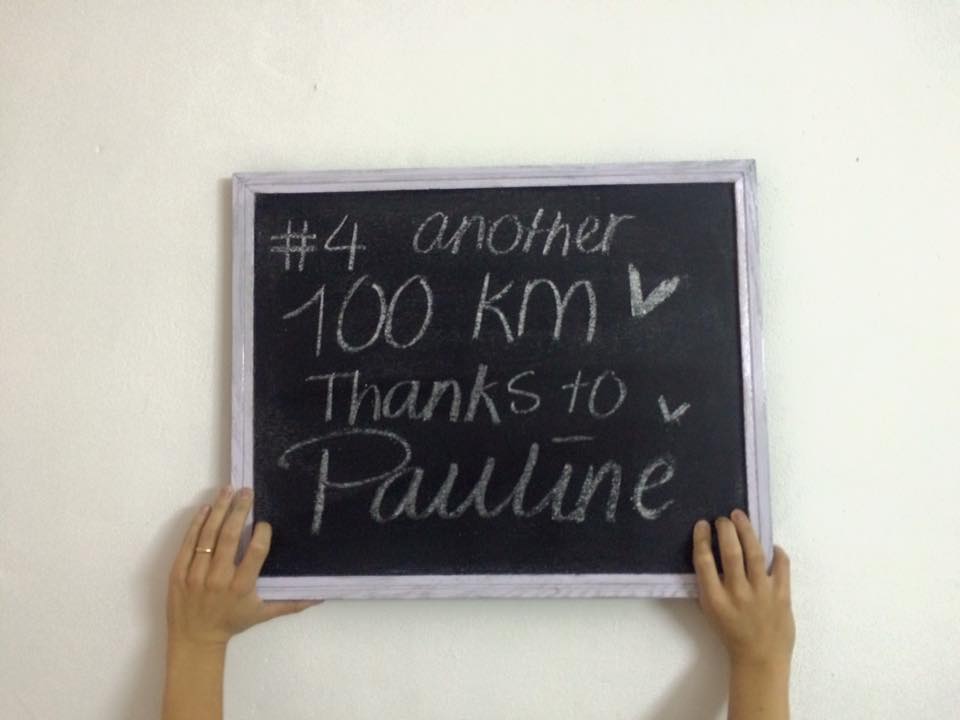 #4 another
100 km
Thanks to
Pauline